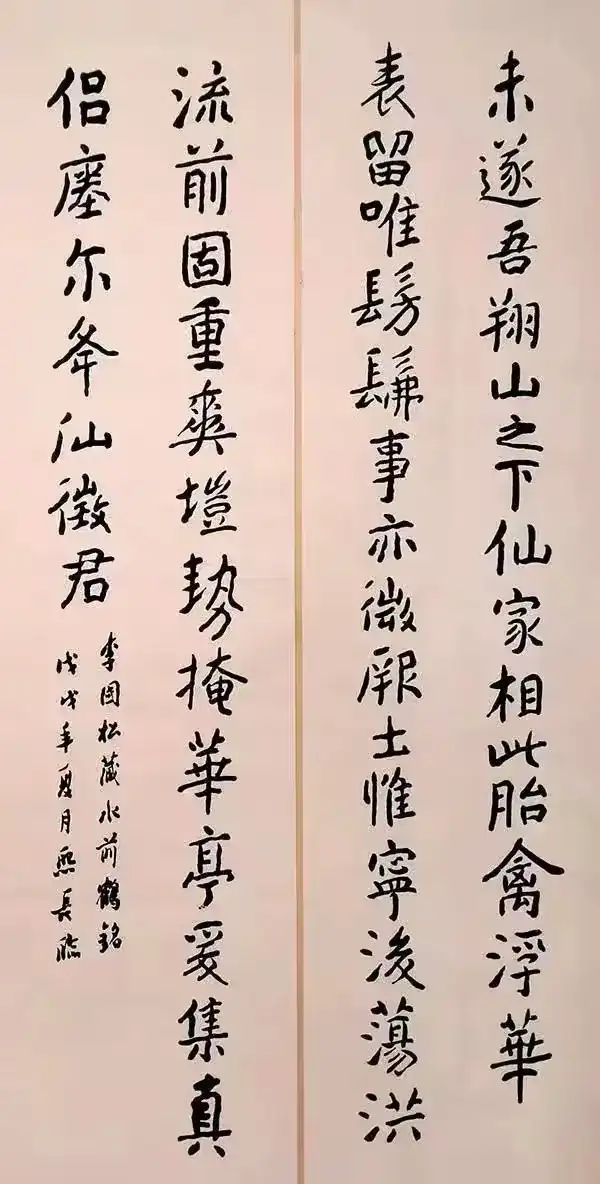 未遂吾翔山之下仙家相此胎禽浮華
表留唯髣髴事亦微厥土惟寧後蕩洪
流前固重爽塏勢掩華亭爰集真
侣瘞尔夅汕徵君
李国松藏水前鶴銘
戊戌年夏月熙長臨